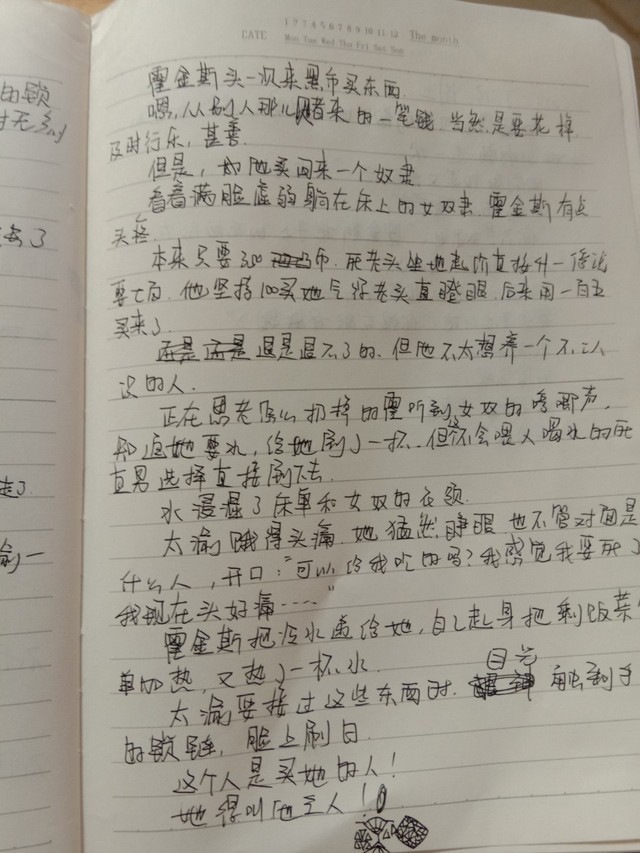 1 7 7 4 5 6 7 8 9 10 11 12 The month
CATE Mon Tue Wed Thu Fri Sat Sun
的锁
霍金斯头一次来黑市买东西
嗯,从别人那儿赌来的一笔钱.当然是要花掉
及时行乐,甚善.
但是,如他买回来一个奴隶
看着满脸虚弱躺在床上的女奴隶.霍金斯有点
头疼
本来只要300币.死老头坐地起价直接升一倍说
要七百.他坚持100买她气得老头直瞪眼.后来用一百五
买来了.
还是还是退是退不了的.但他不太想养一个不认
识的人.
正在思考怎么扔掉的霍听到女奴的哼唧声.
知道她要水,给她倒了一杯.但不会喂人喝水的死
直男选择直接倒下去.
水浸湿了床单和女奴的衣领.
太渝饿得头痛.她猛然睁眼也不管对面是
什么人,开口:"可以给我吃的吗?我感觉我要死了
我现在头好痛……"
霍金斯把冷水递给她,自己起身把剩饭菜
单加热,又热了一杯水.
太渝要接过这些东西时.目光触到手
的锁链,脸上刷白.
这个人是买她的人!
她得叫他主人!